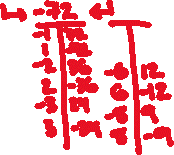 -72
-1 72
1 -72
-2 36
2 -36
-3 24
3 -24
-6 12
6 -12
-8 9
8 -9